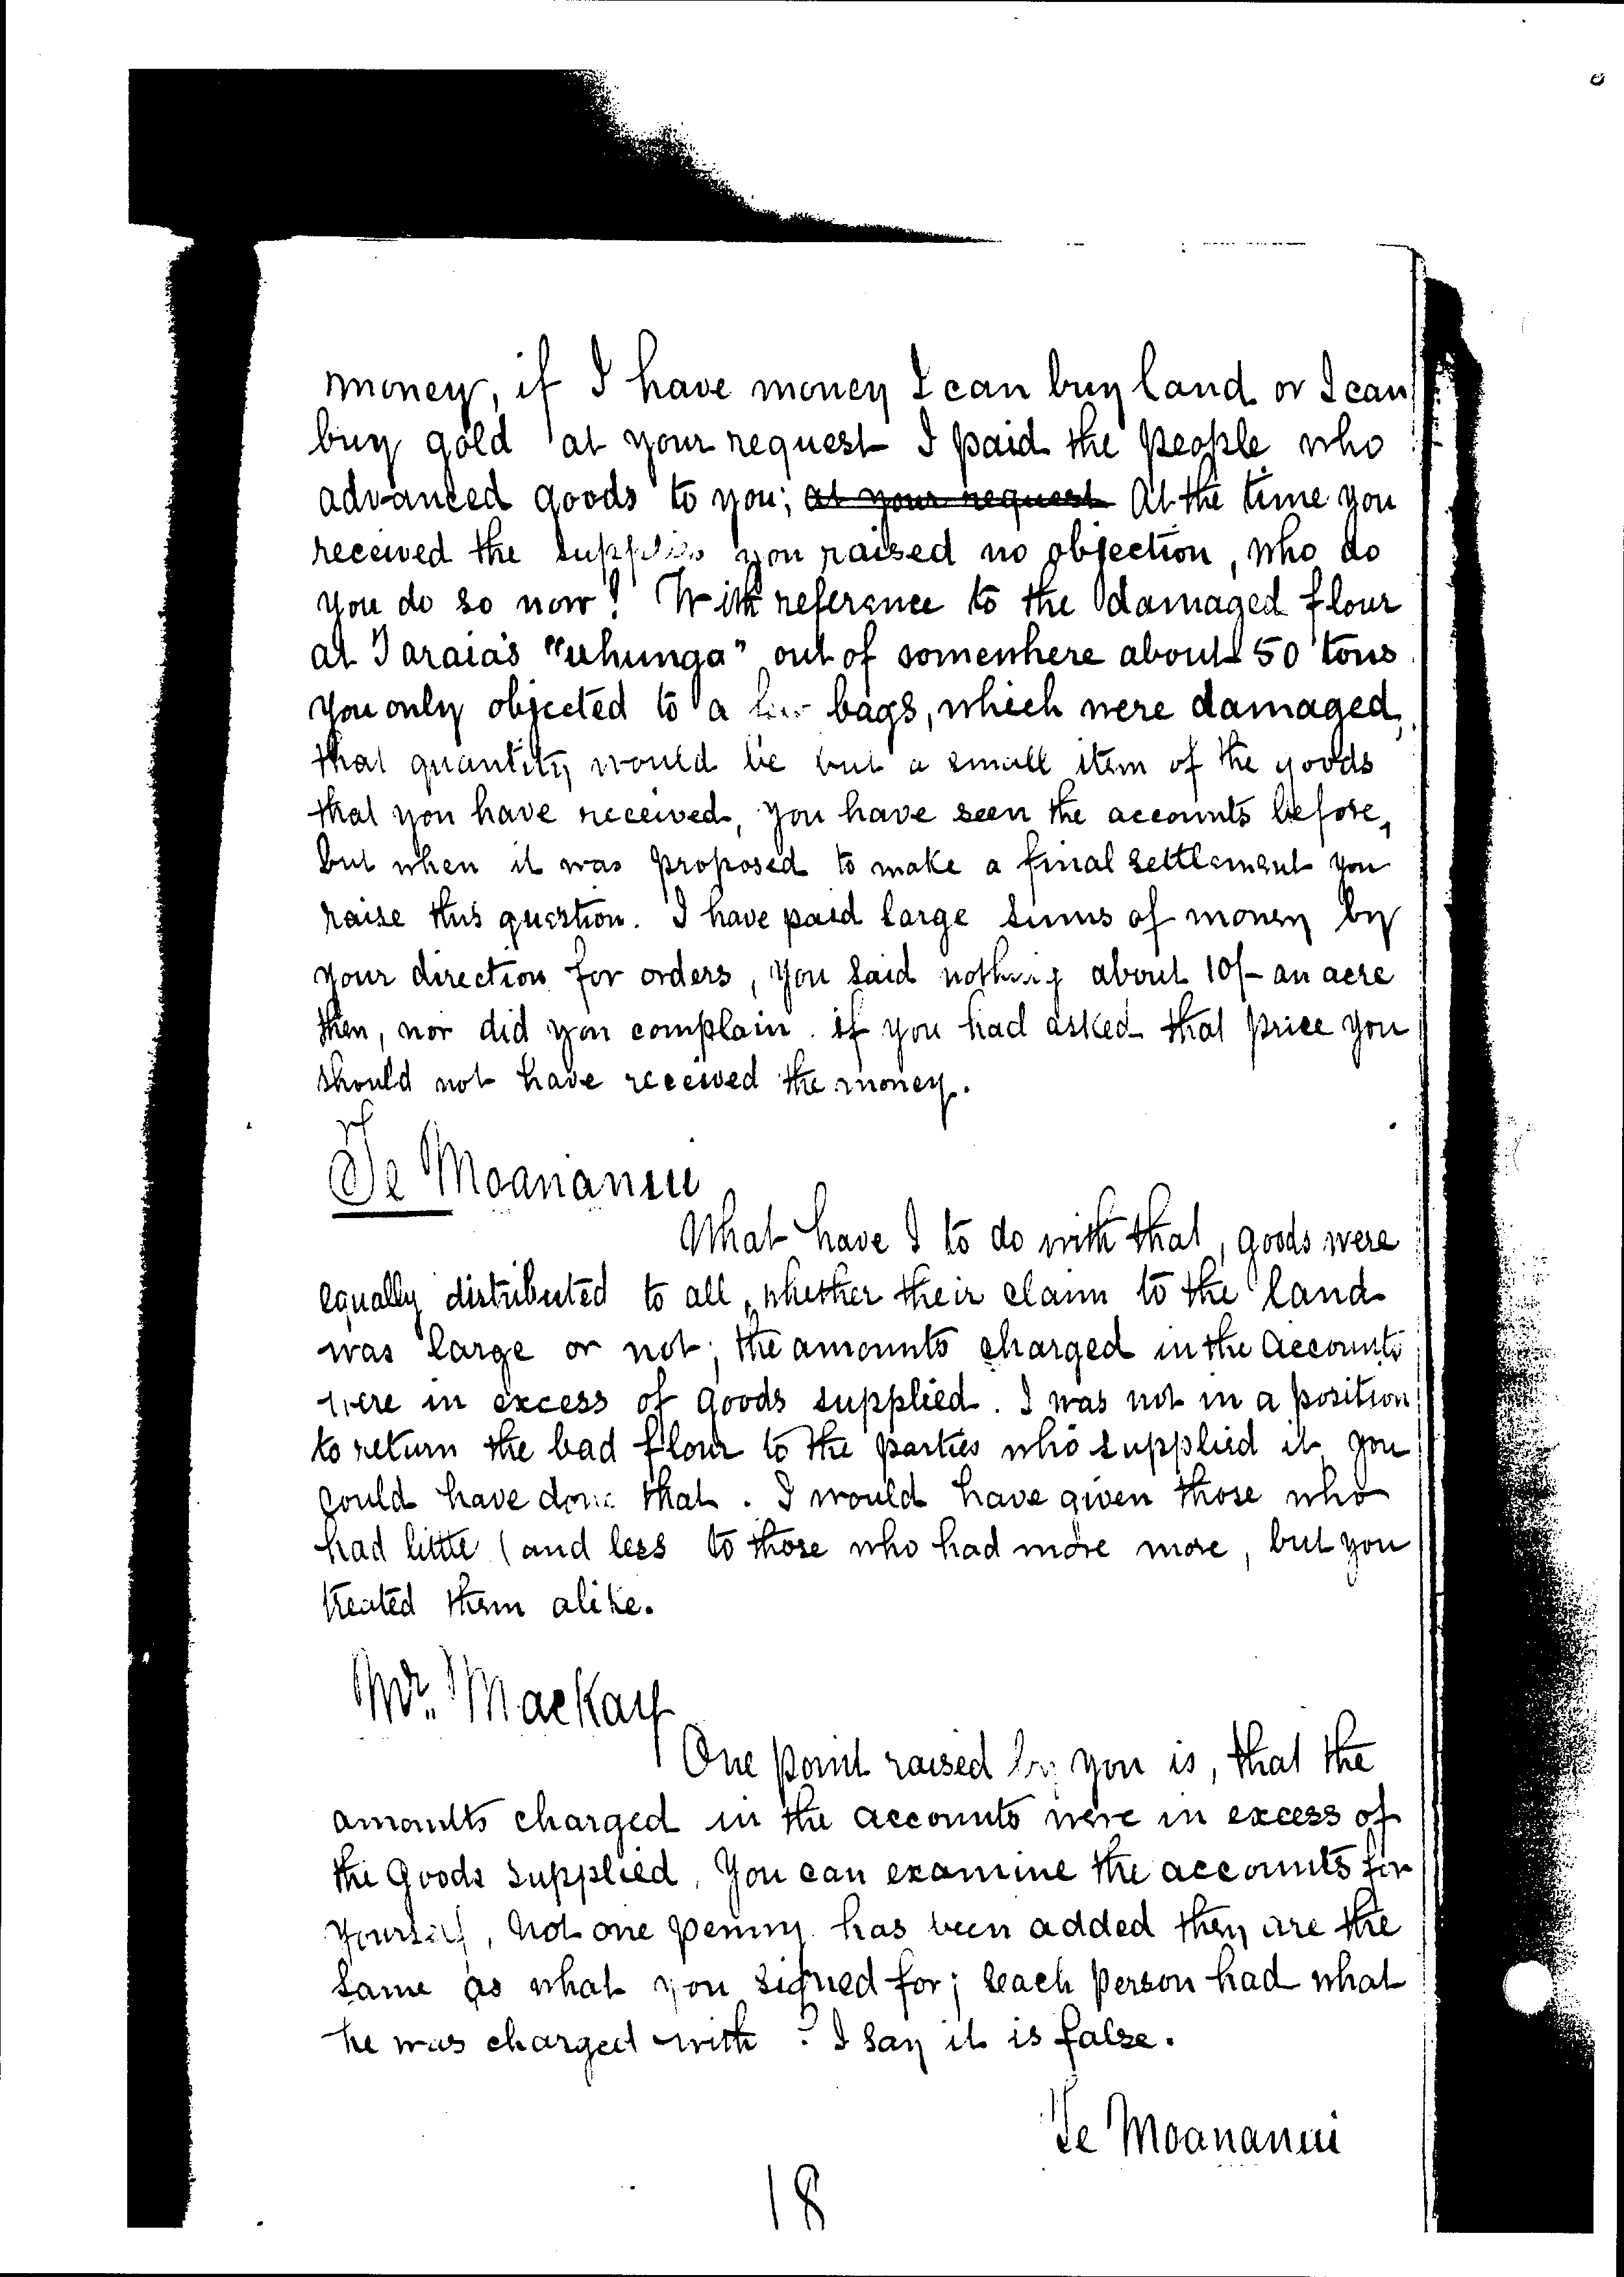 money, if I have money I can buy land or I can
buy gold at your request I paid the people who
advanced goods to you; at your request At the time you
received the supplies you raised no objection, who do
you do so now! With reference to the damaged flour
at Taraia's "uhunga" out of somewhere about 50 tons
you only objected to a few bags, which were damaged,
that quantity would be but a small item of the goods
that you have received, you have seen the accounts before,
but when it was proposed to make a final settlement you
raise this question. I have paid large sums of money by
your direction for orders, you said nothing about 10/- an acre
then, nor did you complain. if you had asked that price you
should not have received the money.
Te Moananui
What have I to do with that, goods were
equally distributed to all, whether their claim to the land
was large or not; the amounts charged in the accounts
were in excess of goods supplied. I was not in a position
to return the bad flour to the parties who supplied it, you
could have done that. I would have given those who
had little (and less to those who had more more, but you
treated them alike.
Mr. Mackay
One point raised by you is, that the
amounts charged in the accounts were in excess of
the Goods supplied, You can examine the accounts for
yourself, not one penny has been added they are the
same as what you signed for; each person had what
he was charged with? I say it is false.
Te Moananui
18